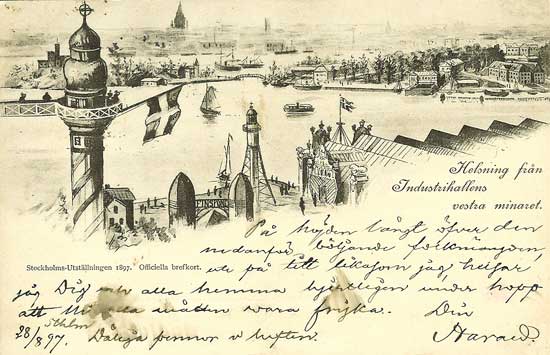 Helsning från
Industrihallens
vestra minaret.
Stockholms-Utställningen 1897. Officiella brefkort.
På höjden långt öfver den
nedanför böljande folkmängden,
ute på till likasom jag, helsar
jag Dig och alla hemma hjertligen under hopp
att Ni alla måtten vara friska. Din
Sthlm
28/8 97. Dåliga pennor o luften. Harald.